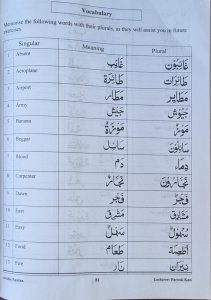 Vocabulary
Memorise the following words with their plurals, so they will assist you in future
exercises.
Singular Meaning Plural
1 Absent غَائِب غَائِبُوْن
2 Aeroplane طَائِرَة طَائِرَات
3 Airport مَطَار مَطَارَات
4 Army جَيْش جُيُوْش
5 Banana مَوْزَة مَوْز
6 Beggar سَائِل سَائِلُوْن
7 Blood دَم دِمَاء
8 Carpenter نَجَّار نَجَّارُوْن
9 Dawn فَجْر
10 East مَشْرِق مَشَارِق
11 Easy سَهْل
12 Food طَعَام أَطْعِمَة
13 Fire نَار نِيْرَان
81
Lecturer: Farouk Kazi